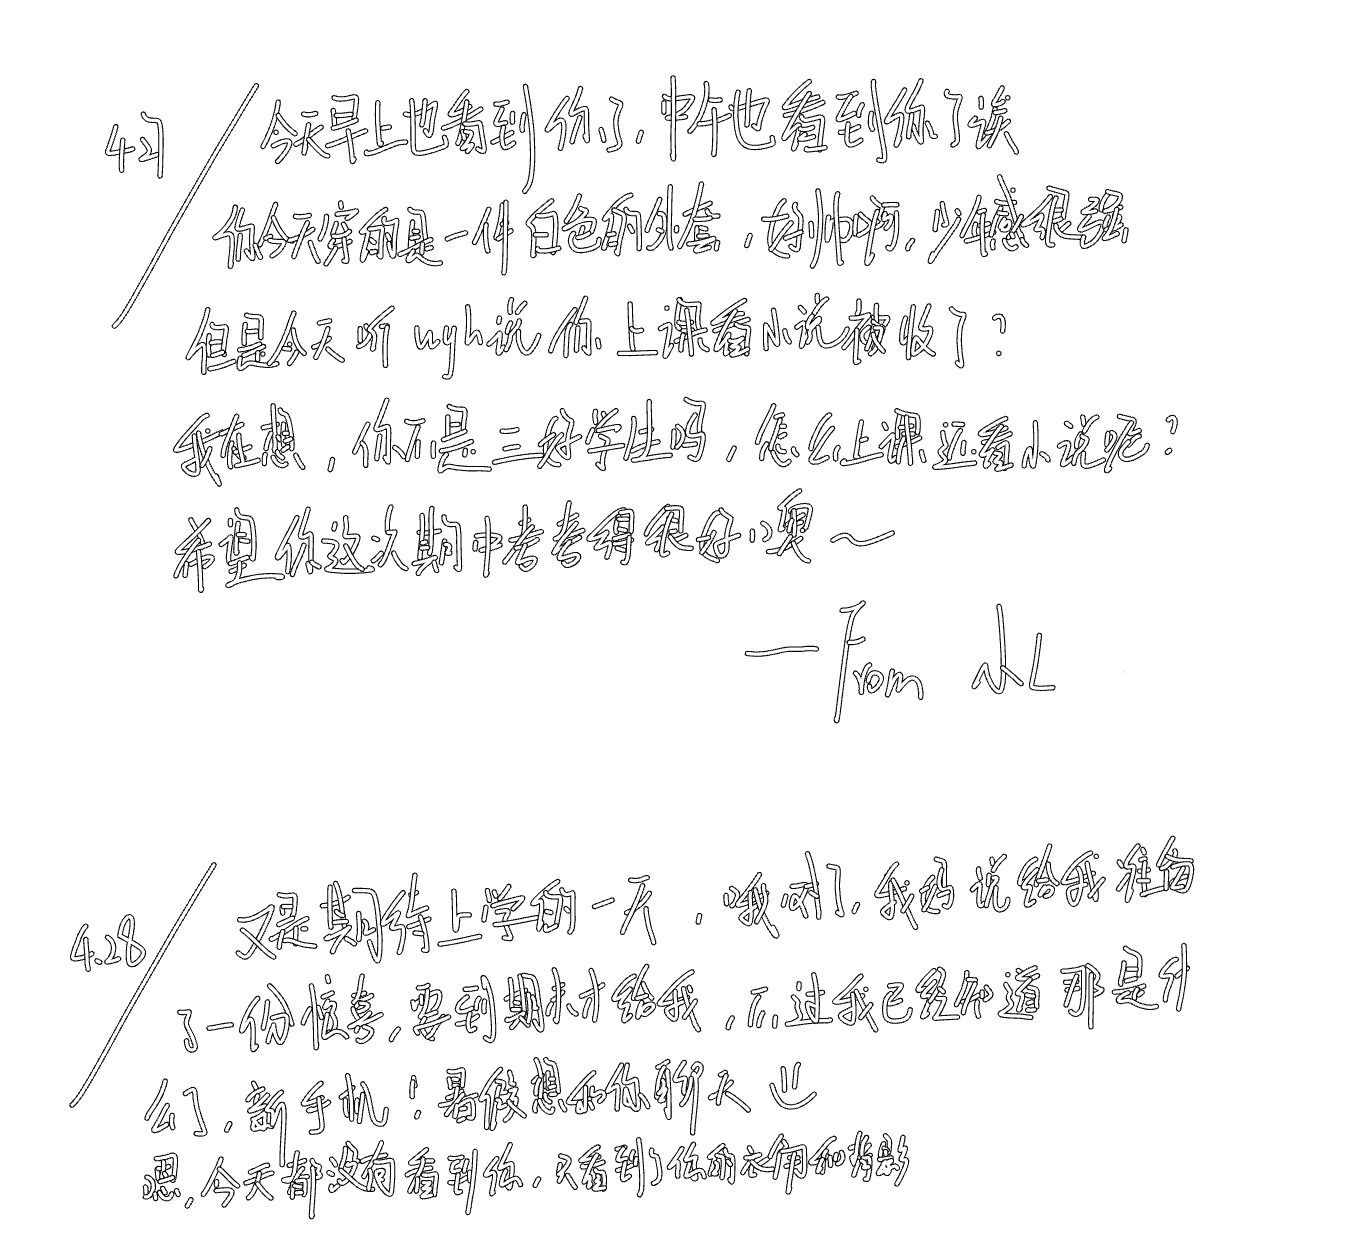 4.27 今天早上也看到你了,中午也看到你了诶
你今天穿的是一件白色的外套,好帅啊,少年感很强
但是今天听wyh说你上课看小说被收了?
我在想,你不是三好学生吗,怎么上课还看小说呢?
希望你这次期中考考得很好噢~
—From
4.28 又是期待上学的一天,哦对了,我妈说给我准备
了一份惊喜,要到期末才给我,不过我已经知道那是什
么了,新手机!暑假想和你聊天
嗯,今天都没有看到你,只看到了你的衣角和背影